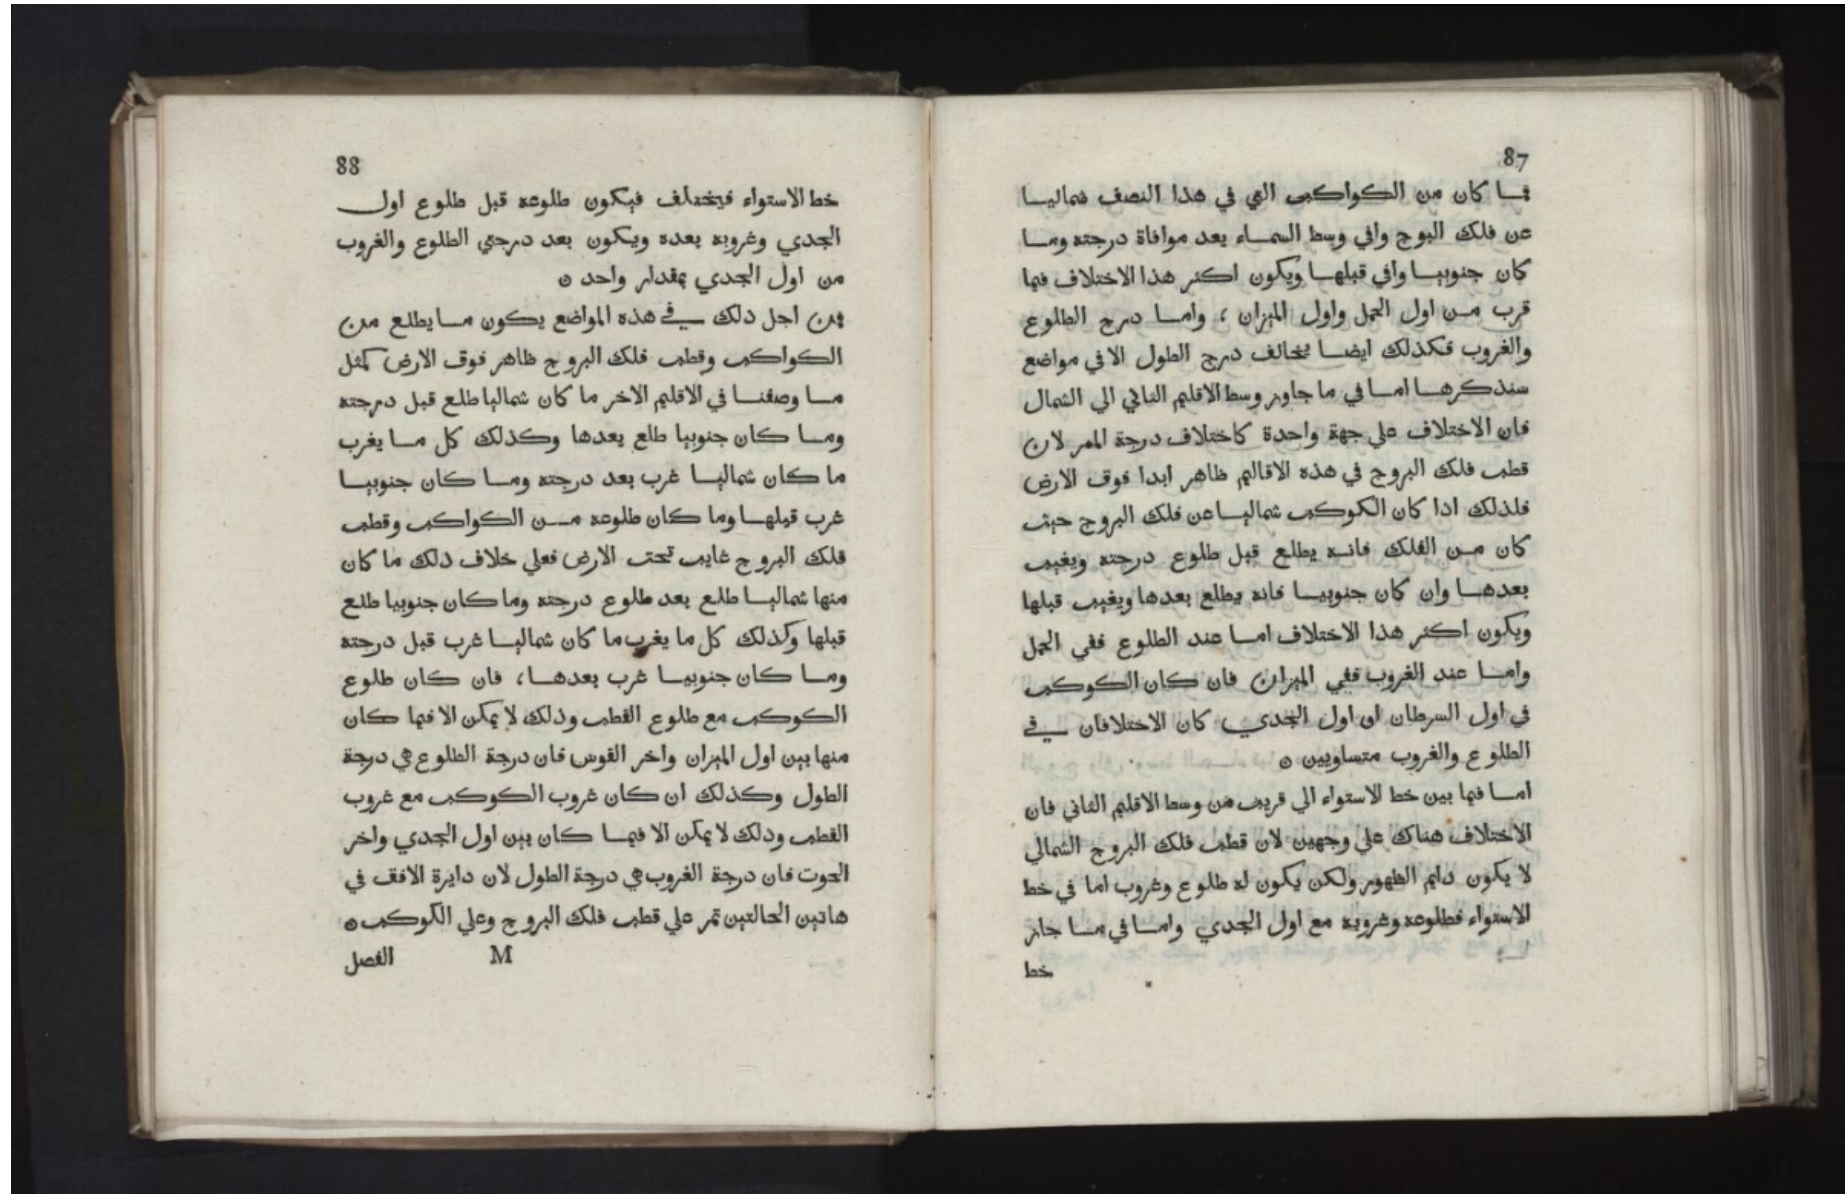 87
فما كان من الكواكب التي في هذا النصف شماليا
عن فلك البروج وافي وسط السماء بعد موافاة درجته وما
كان جنوبيا وافي قبلها ويكون اكثر هذا الاختلاف فيما
قرب من اول الحمل واول الميزان ، واما درج الطلوع
والغروب فكذلك ايضا تخالف درج الطول الا في مواضع
سنذكرها اما في ما جاوز وسط الاقليم الثاني الي الشمال
فان الاختلاف علي جهة واحدة كاختلاف درجة الممر لان
قطب فلك البروج في هذه الاقاليم ظاهر ابدا فوق الارض
فلذلك اذا كان الكوكب شماليا عن فلك البروج حيث
كان من الفلك فانه يطلع قبل طلوع درجته ويغيب
بعدها وان كان جنوبيا فانه يطلع بعدها ويغيب قبلها
ويكون اكثر هذا الاختلاف اما عند الطلوع ففي الحمل
واما عند الغروب ففي الميزان فان كان الكوكب
في اول السرطان او اول الجدي كان الاختلافان في
الطلوع والغروب متساويين ο
اما فيما بين خط الاستواء الي قريب من وسط الاقليم الثاني فان
الاختلاف هناك علي وجهين لان قطب فلك البروج الشمالي
لا يكون دايم الظهور ولكن يكون له طلوع وغروب اما في خط
الاستواء فطلوعه وغروبه مع اول الجدي واما في ما جاز
خط
88
خط الاستواء فيختلف فيكون طلوعه قبل طلوع اول
الجدي وغروبه بعده ويكون بعد درجتي الطلوع والغروب
من اول الجدي بمقدار واحد ο
فمن اجل ذلك في هذه المواضع يكون ما يطلع من
الكواكب وقطب فلك البروج ظاهر فوق الارض كمثل
ما وصفنا في الاقليم الاخر ما كان شماليا طلع قبل درجته
وما كان جنوبيا طلع بعدها وكذلك كل ما يغرب
ما كان شماليا غرب بعد درجته وما كان جنوبيا
غرب قبلها وما كان طلوعه من الكواكب وقطب
فلك البروج غايب تحت الارض فعلي خلاف ذلك ما كان
منها شماليا طلع بعد طلوع درجته وما كان جنوبيا طلع
قبلها وكذلك كل ما يغرب ما كان شماليا غرب قبل درجته
وما كان جنوبيا غرب بعدها ، فان كان طلوع
الكوكب مع طلوع القطب وذلك لا يمكن الا فيما كان
منها بين اول الميزان واخر القوس فان درجة الطلوع هي درجة
الطول وكذلك ان كان غروب الكوكب مع غروب
القطب وذلك لا يمكن الا فيما كان بين اول الجدي واخر
الحوت فان درجة الغروب هي درجة الطول لان دايرة الافق في
هاتين الحالتين تمر علي قطب فلك البروج وعلي الكوكب ο
M الفصل